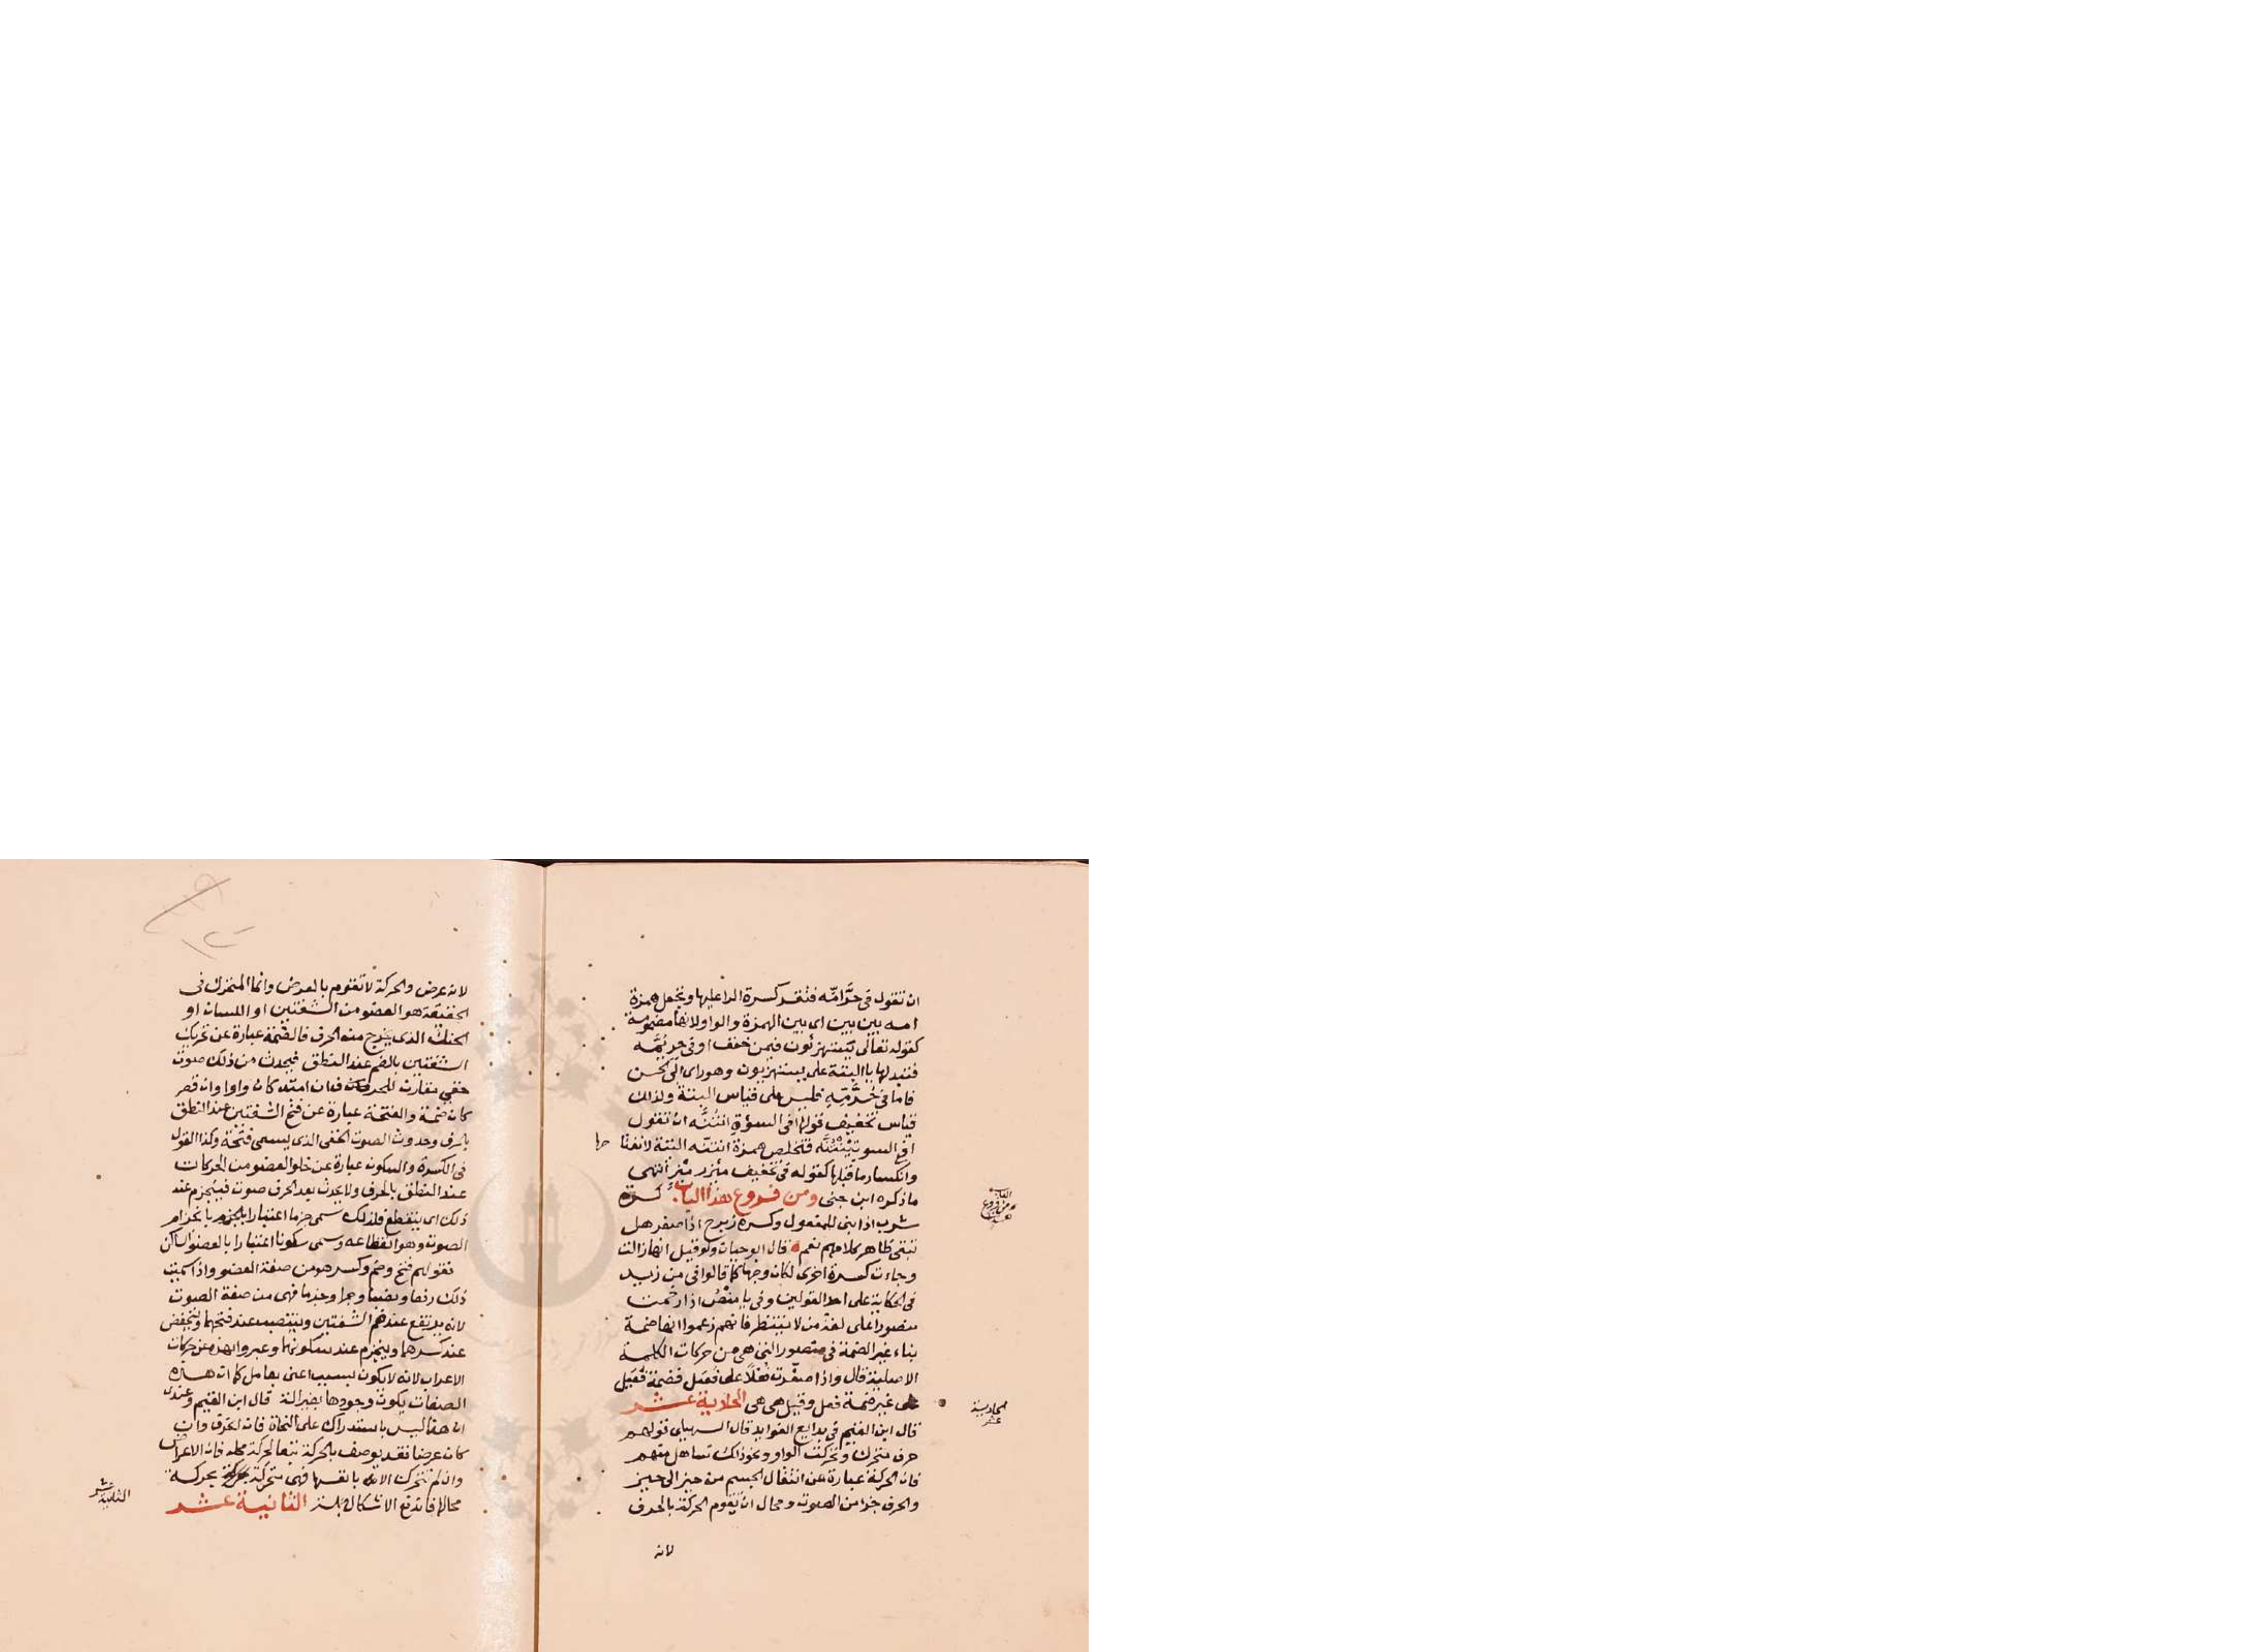 ان تقول في حرّ امّه فتقدر كسرة الرا عليها وتجعل همزة
امه بين بين اى بين الهمزة والواو لانها مضمومة
كقوله تعالى يستهزئون فيمن خفف او في حرِ يُمِّه
فتبدلها ياا البتة على يستهزيون وهو راى ابى الحسن
فاما في حُرِّمِّهِ فليس على قياس البتة ولذلك
قياس تخفيف قولهم افي السوءةِ انتُنَّه ان تقول
افي السو تنتنّه فتخلص همزة انتنّه البتة لانفتا حها
وانكسار ما قبلها كقوله في تخفيف مئزر ميزر انتهى
ماذكره ابن جنى ومن فروع هذا الباب كسرة
شرب اذا بنى للمفعول وكسرة زبرج اذا صغر هل
تبقى ظاهر كلامهم نعم قال ابو حيان ولو قيل انها زالت
وجاءت كسرة اخرى لكان وجها كما قالوا في من زيد
في الحكاية على احد القولين وفي يا منصُ اذا رخمت
منصورا على لغة من لا ينتظر فانهم زعموا انها ضمة
بناء غير الضمة في منصور التي هي من حركات الكلمة
الاصلية قال واذا صغّرت فُعَلًا على فُعَيل فضمة فُعَيل
غير ضمة فعل وقيل هي هي الحادية عشر
قال ابن القيم في بدايع الفوايد قال السهيلى قولهم
حرف متحرك وتحركت الواو ونحو ذلك تساهل منهم
فان الحركة عبارة عن انتقال الجسم من حيز الى حيز
والحرف جزء من الصوت ومحال ان تقوم الحركة بالحرف
لانه
ومن فروع
الحادية
عشر
لانه عرض والحركة لا تقوم بالعرض وانما المتحرك في
الحقيقة هو العضو من الشفتين او اللسان او
الحنك الذى يخرج منه الحرف فالضمة عبارة عن تحريك
الشفتين بالضم عند النطق فيحدث من ذلك صوت
خفي مقارن للحرف فان امتد كان واوا وان قصر
كان ضمة والفتحة عبارة عن فتح الشفتين عند النطق
بالحرف وحدوث الصوت الخفي الذى يسمى فتحة وكذا القول
في الكسرة والسكون عبارة عن خلو العضو من الحركات
عند النطق بالحرف ولا يحدث بعد الحرف صوت فينجزم عند
ذلك اى ينقطع فلذلك سمى جزما اعتبارا بالجزم بانجزام
الصوت وهو انقطاعه وسمى سكونا اعتبارا بالعضو الساكن
فقولهم فتح وضم وكسر هو من صفة العضو واذا سميت
ذلك رفعا ونصبا وجرا وجزما فهى من صفة الصوت
لانه يرتفع عند ضم الشفتين وينتصب عند فتحهما وينخفض
عند كسرهما وينجزم عند سكونهما وعبروا بهذه عن حركات
الاعراب لانه لا يكون بسبب اعنى بعامل كما ان هذه
الصفات يكون وجودها بغير الة قال ابن القيم وعندى
ان هذا ليس باستدراك على النحاة فان الحرف وان
كان عرضا فقد يوصف بالحركة تبعا لحركة محله فان الاعراض
وان لم تتحرك بانفسها فهى متحركة بحركة
محالها فاندفع الاشكال جملة الثانية عشر
الثانية عشر